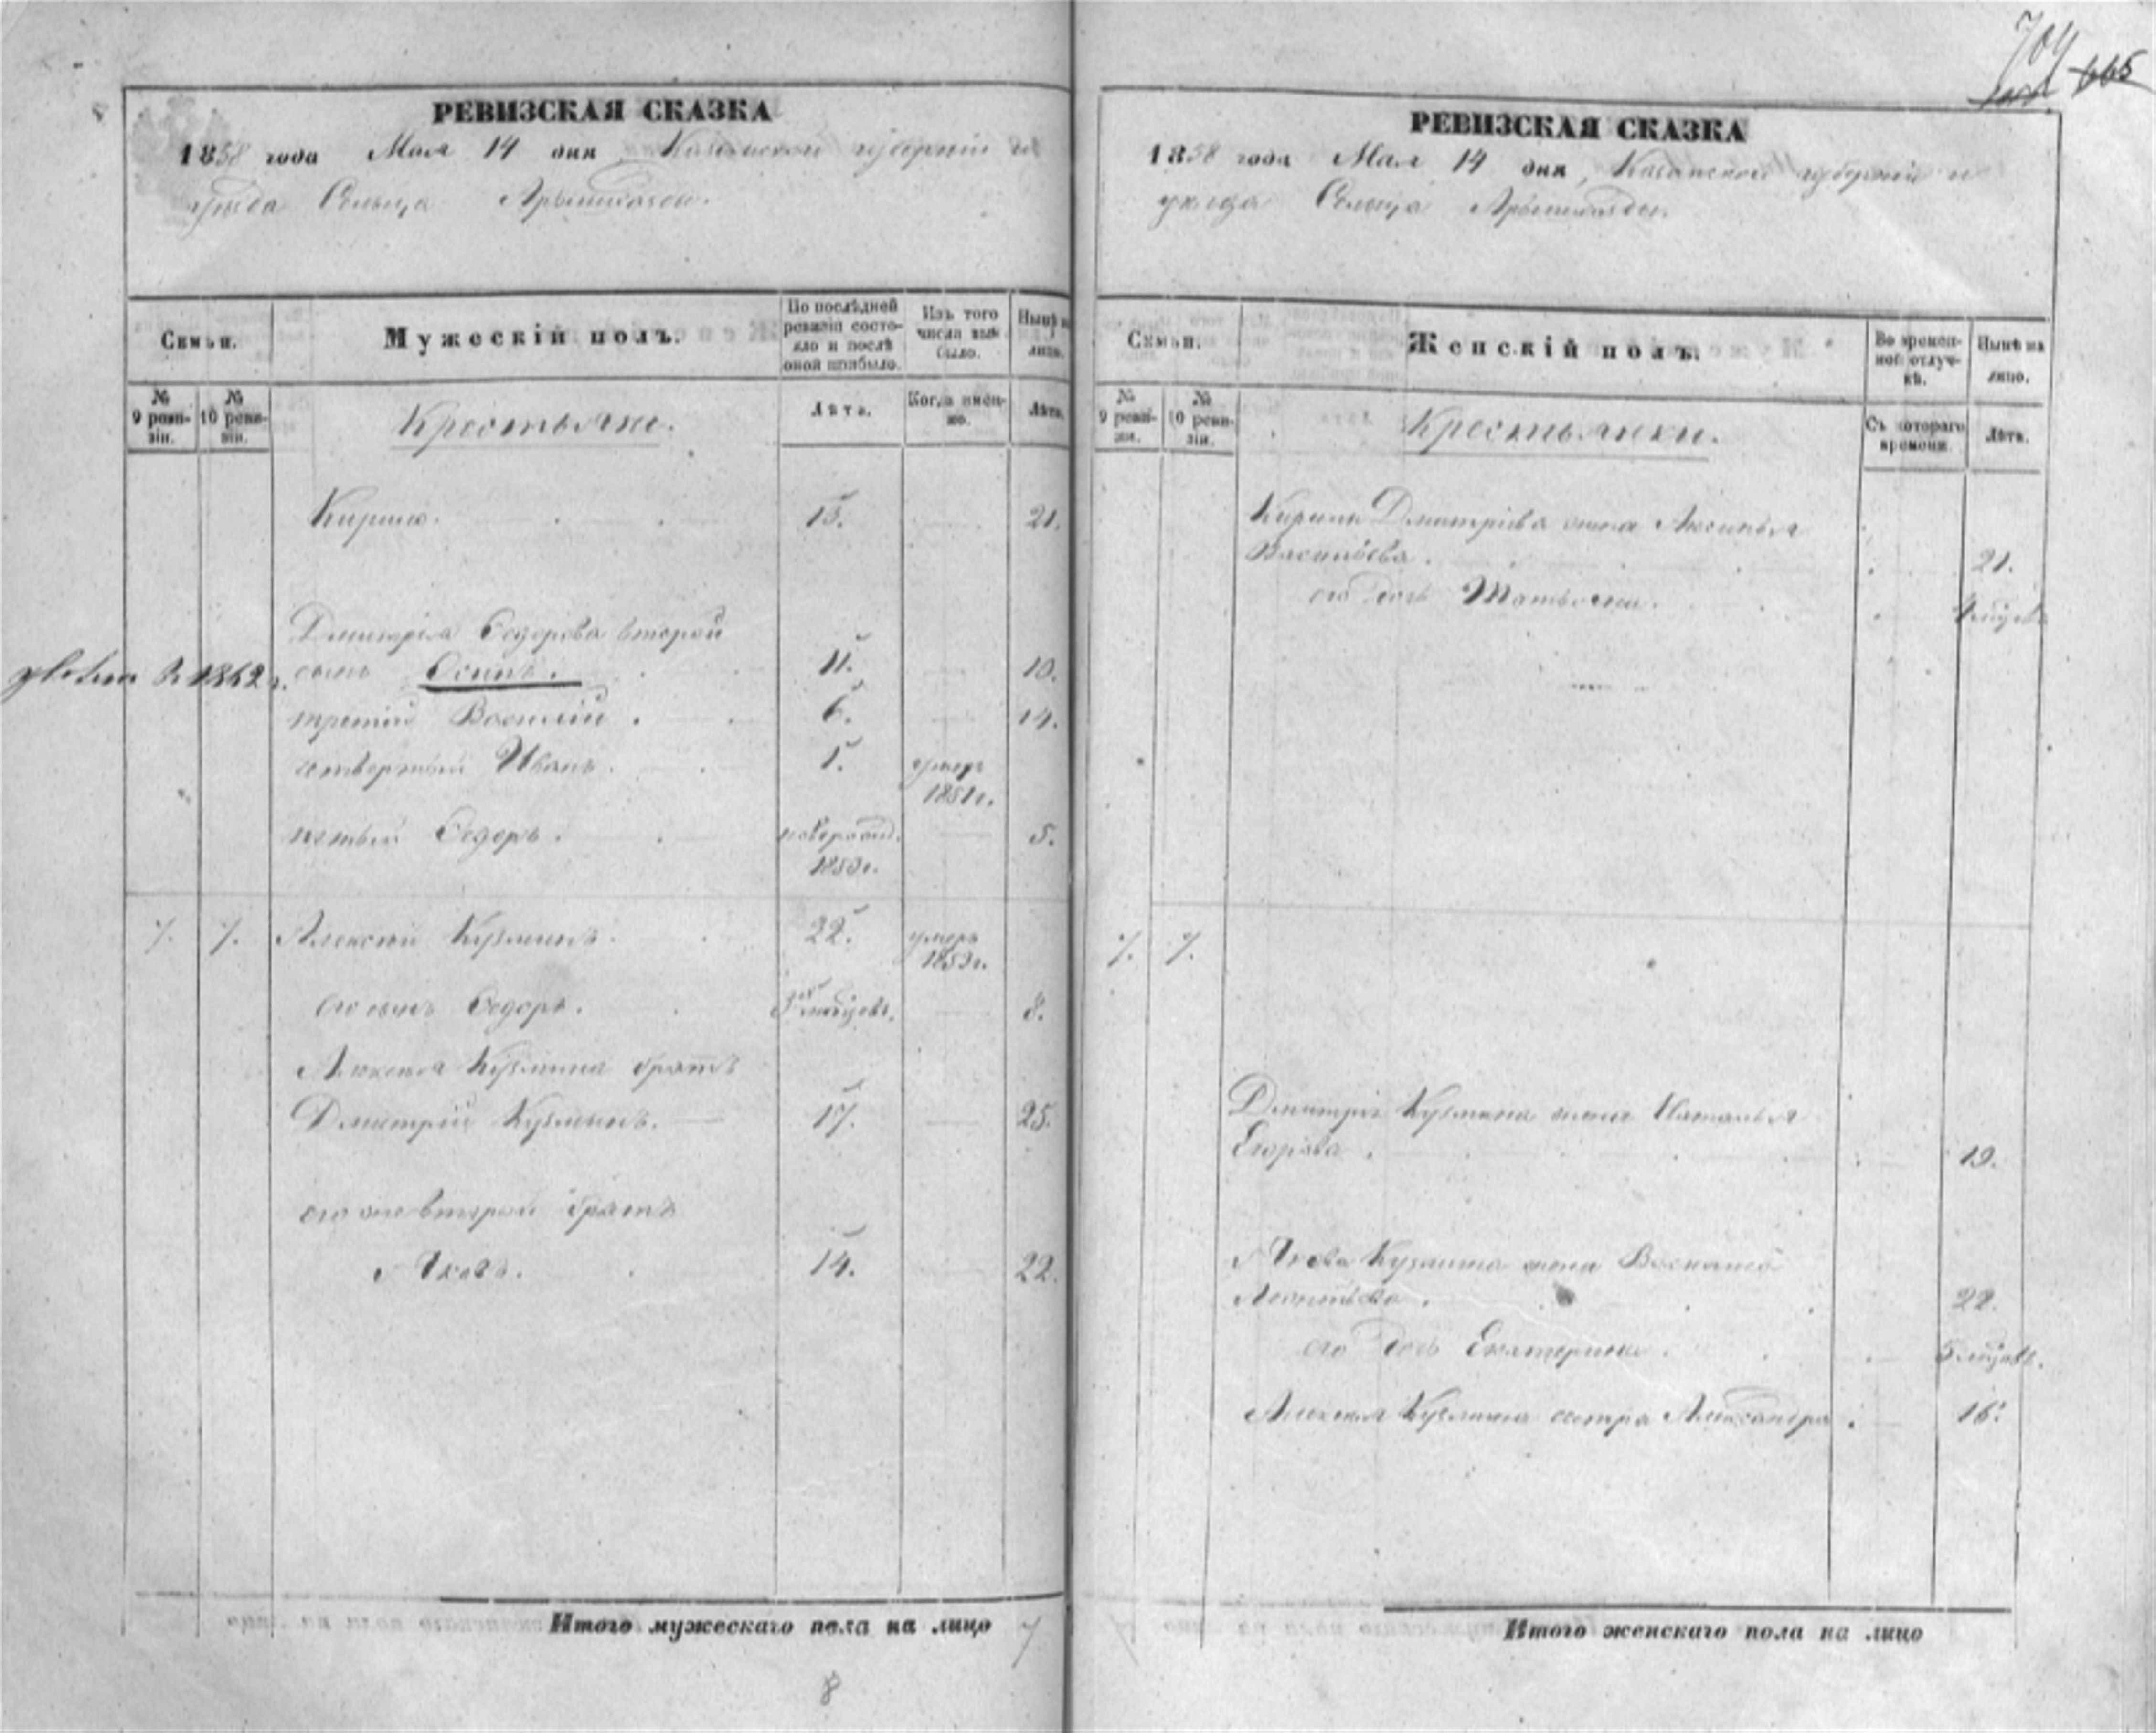 704
665
РЕВИЗСКАЯ СКАЗКА
1858 года Мая 14 дня, Казанской губернiи и
уѣзда Сельца
Семьи.
Мужескiй полъ.
По послѣдней ревизiи состояло и послѣ оной прибыло.
Изъ того числа выбыло.
Нынѣ на лицо.
№ 9 ревизiи.
№ 10 ревизiи.
Крестьяне.
Лѣта.
Когда именно.
Лѣта.
Кирила. 13. 21.
Дмитрiя Ѳедорова второй
1862 г. сынъ Осипъ. 11. 19.
третiй Василiй. 6. 14.
четвертый Иванъ. 1. умеръ
1851 г.
пятый Ѳедоръ. новорожд. 5.
1853 г.
7. 7. Алексѣй Кузминъ. 22. умеръ
1853 г.
его сынъ Ѳедоръ. 3 мѣсяцовъ. 8.
Алексѣя Кузмина братъ
Дмитрiй Кузминъ. 17. 25.
его же второй братъ
Яковъ. 14. 22.
Итого мужескаго пола на лицо 7
8
РЕВИЗСКАЯ СКАЗКА
1858 года Мая 14 дня, Казанской губернiи и
уѣзда Сельца
Семьи.
Женскiй полъ.
Во временной отлучкѣ.
Нынѣ на лицо.
№ 9 ревизiи.
№ 10 ревизiи.
Крестьянки.
Съ котораго времени.
Лѣта.
Кирилы Дмитрiева жена Аксинья
Васильева. 21.
его дочь Татьяна.
7. 7.
Дмитрiя Кузмина жена Наталья
Егорова. 19.
Якова Кузмина жена
Леонтьева. 22.
его дочь Екатерина.
Алексѣя Кузмина сестра Александра. 16.
Итого женскаго пола на лицо